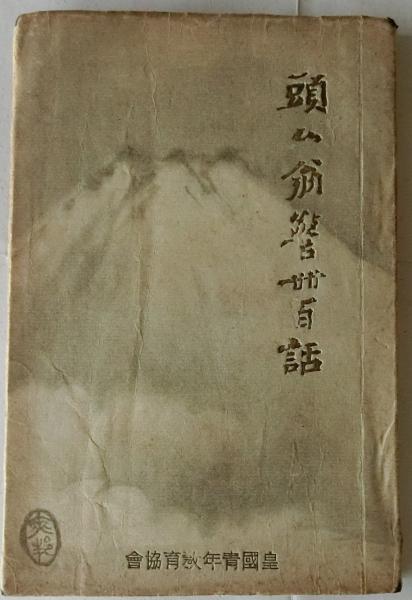 頭山翁警世百話
皇國青年教育協會